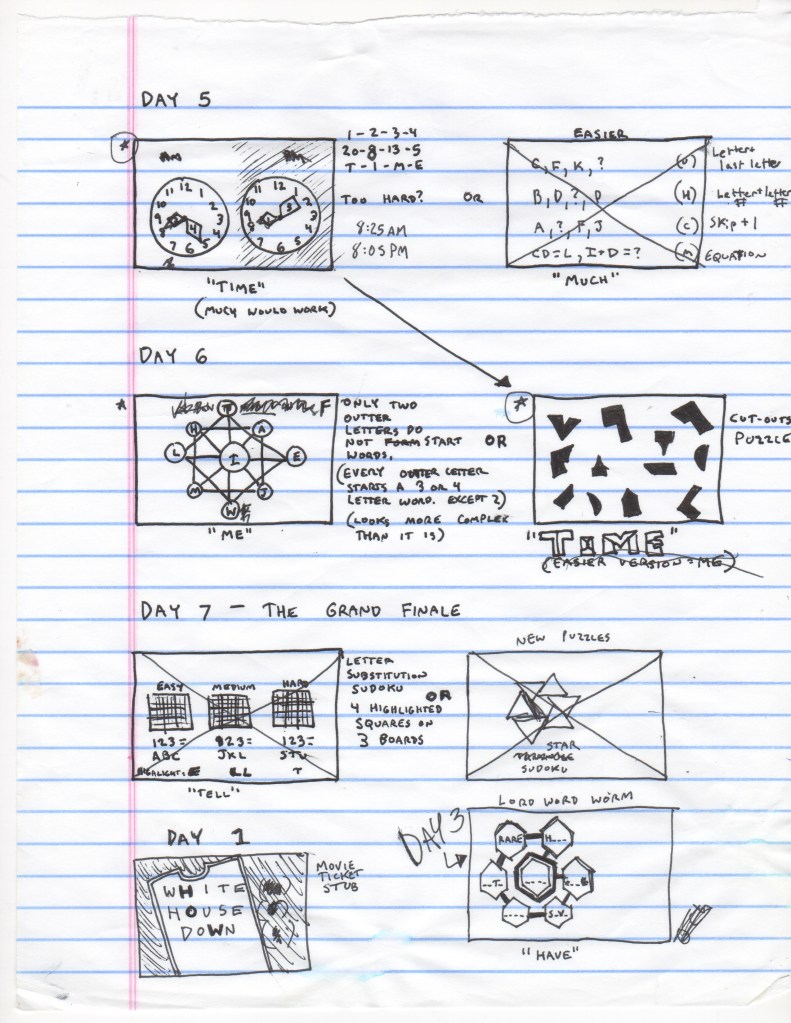 DAY 5
AM
PM
11 12 1
10 2
9 3
8 4
7 6 5
11 12 1
10 2
9 3
8 4
7 6 5
1-2-3-4
20-8-13-5
T-I-M-E
TOO HARD?
8:25AM
8:05PM
"TIME"
(MUCH WOULD WORK)
OR
EASIER
C, F, K, ?
B, D, ?, P
A, ?, F, J
CD=L, I+D=?
(U) Letter+ last letter
(H) Letter#+letter#
(C) SKIP+1
(M) EQUATION
"MUCH"
DAY 6
H
A
L
I
E
M
J
W
F
"ME"
ONLY TWO
OUTTER
LETTERS DO
NOT FORM START
WORDS.
(EVERY OUTTER LETTER
STARTS A 3 OR 4
LETTER WORD. EXCEPT 2)
(LOOKS MORE COMPLEX
THAN IT IS)
OR
CUT-OUTS
PUZZLE
"TIME"
(EASIER VERSION=ME)
DAY 7 - THE GRAND FINALE
EASY MEDIUM HARD
123= 823= 123=
ABC JKL STU
HIGHLIGHT: E LL T
"TELL"
LETTER
SUBSTITUTION
SUDOKU
4 HIGHLIGHTED
SQUARES ON
3 BOARDS
OR
NEW PUZZLES
STAR
SUDOKU
DAY 1
WHITE
HOUSE
DOWN
MOVIE
TICKET
STUB
DAY 3
LORD WORD WORM
RARE
H---
--T-
----
----
S-V-
"HAVE"